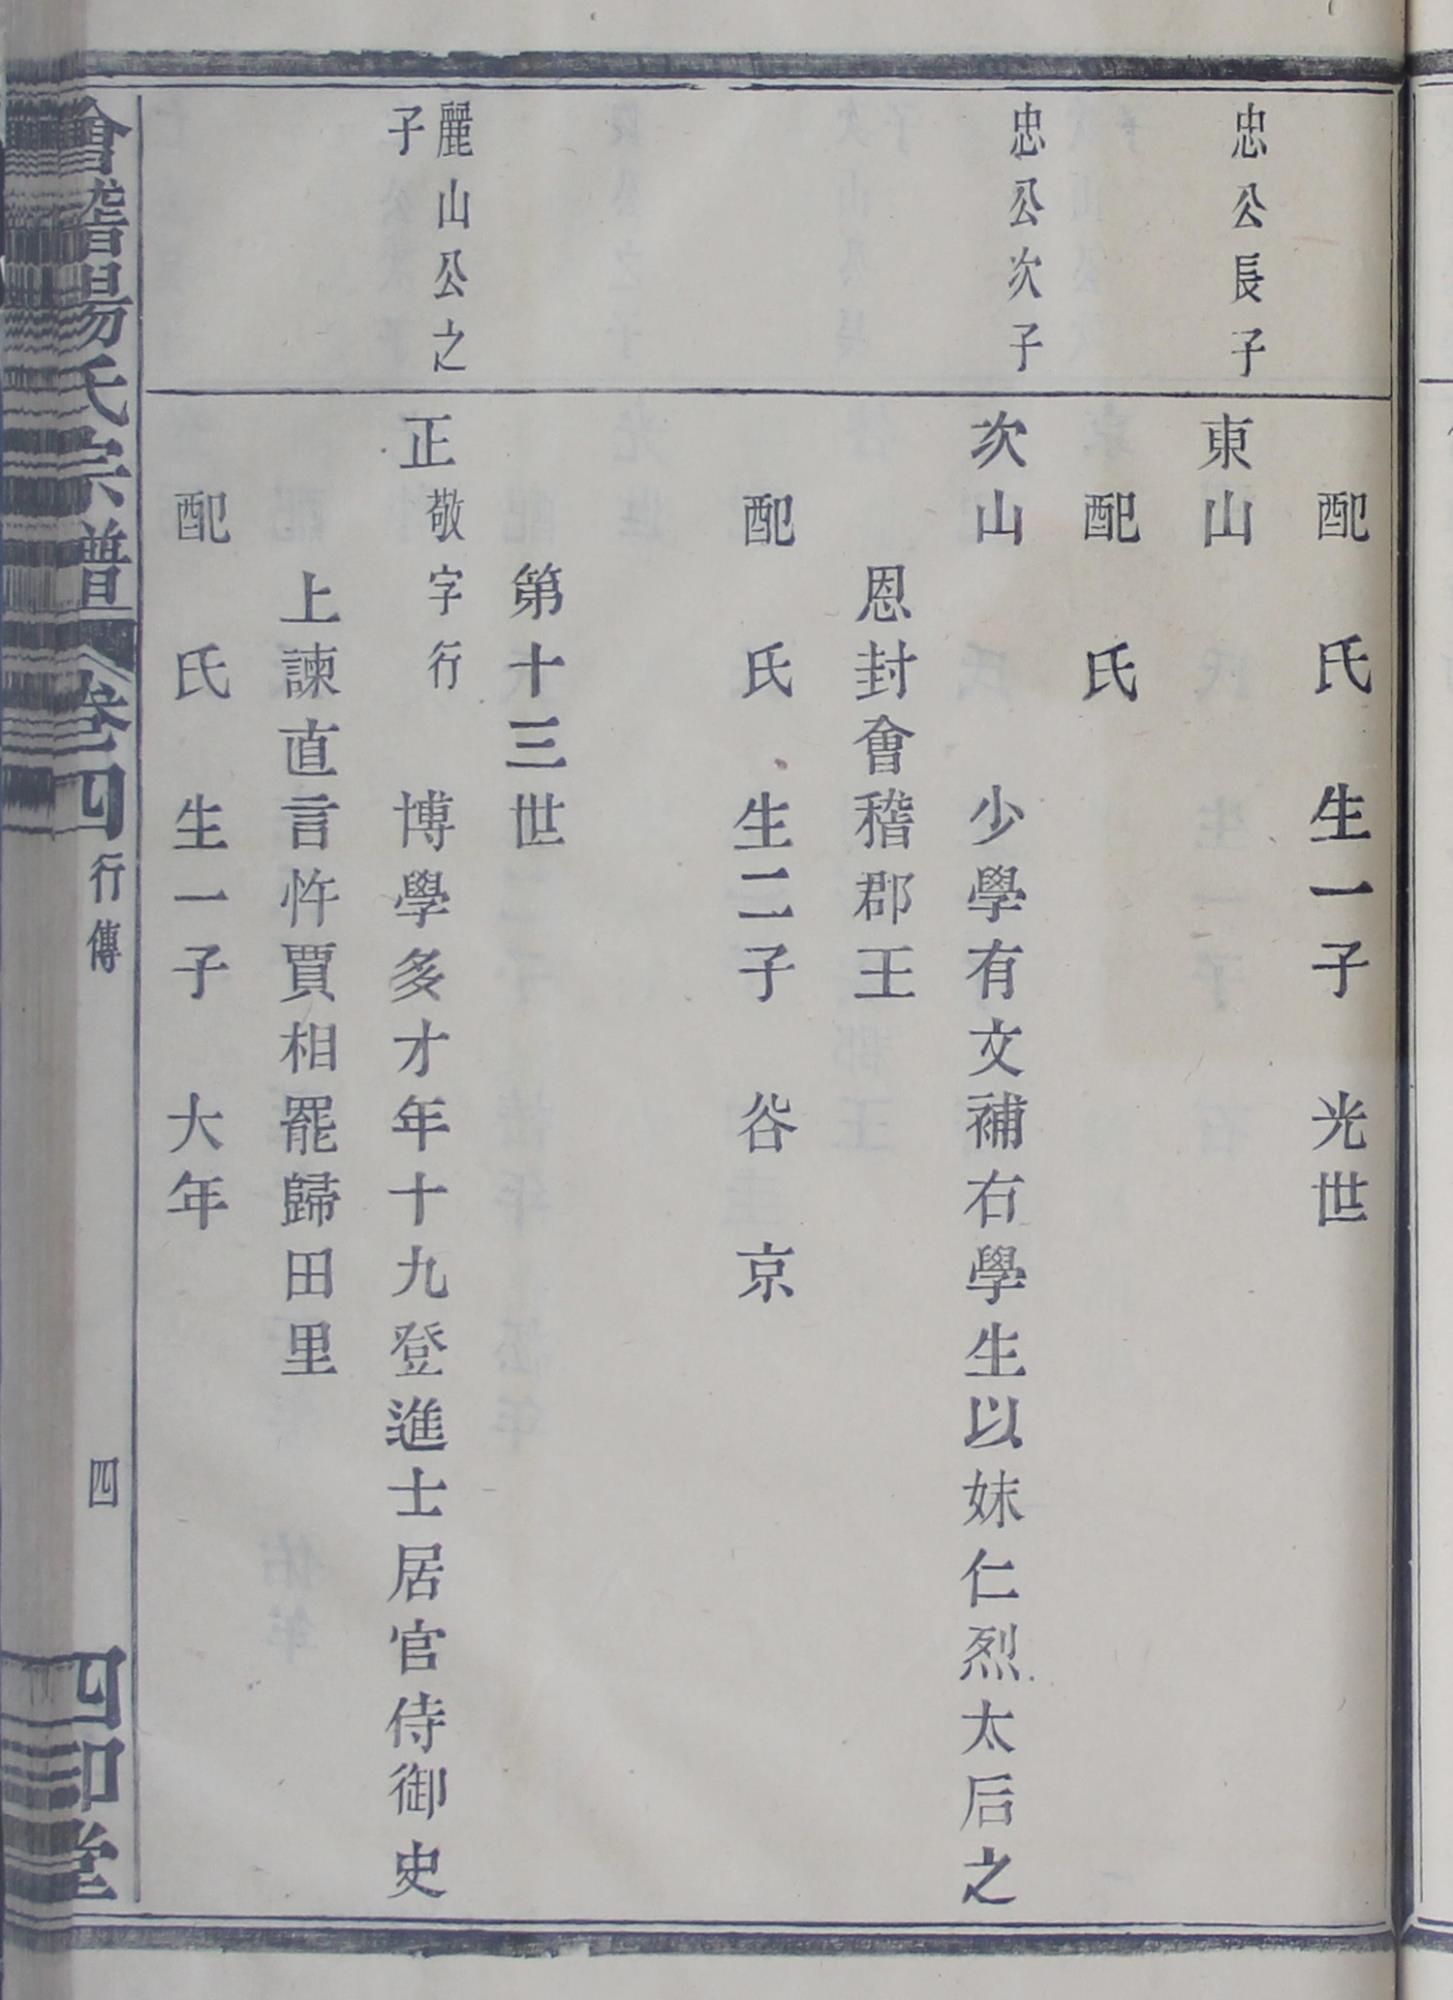 配　氏　生一子　光世
忠公長子
東山
配　氏
忠公次子
次山　少學有文補右學生以妹仁烈太后之
恩封會稽郡王
配　氏　生二子　谷　京
第十三世
麗山公之
子
正敬字行　博學多才年十九登進士居官侍御史
上諫直言忤賈相罷歸田里
配　氏　生一子　大年
會稽楊氏宗譜　卷四　行傳　四　四印堂